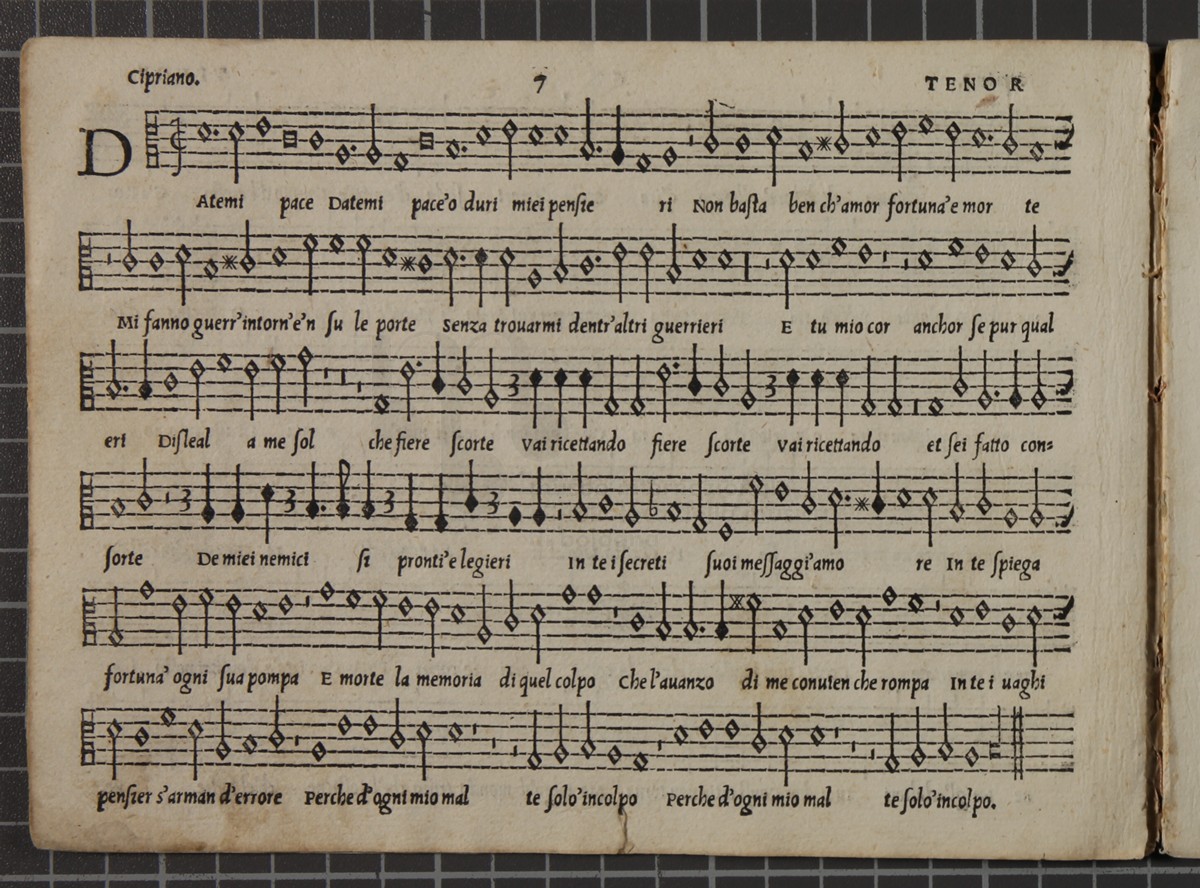 Cipriano. 7 TENOR
D
Atemi pace Datemi pace'o duri miei pensie ri Non basta ben ch'amor fortuna'e mor te
Mi fanno guerr'intorn'e'n su le porte Senza trouarmi dentr'altri guerrieri E tu mio cor anchor se pur qual
eri Disleal a me sol che fiere scorte Vai ricettando fiere scorte Vai ricettando et sei fatto con=
sorte De miei nemici si pronti'e legieri In te i secreti suoi messaggi'amo re In te spiega
fortuna' ogni sua pompa E morte la memoria di quel colpo Che l'auanzo di me conuien che rompa In te i uaghi
pensier s'arman d'errore Perche d'ogni mio mal te solo'incolpo Perche d'ogni mio mal te solo'incolpo.